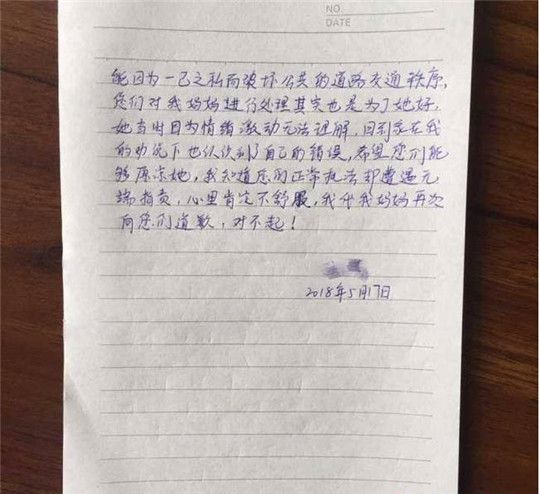 NO.
DATE
能因为一己之私而破坏公共的道路交通秩序,
您们对我妈妈进行处理其实也是为了她好,
她当时因为情绪激动无法理解,回到家在我
的劝说下也认识到了自己的错误,希望您们能
够原谅她,我知道您们正常执法却遭遇无
端指责,心里肯定不舒服,我代我妈妈再次
向您们道歉,对不起!
2018年5月17日